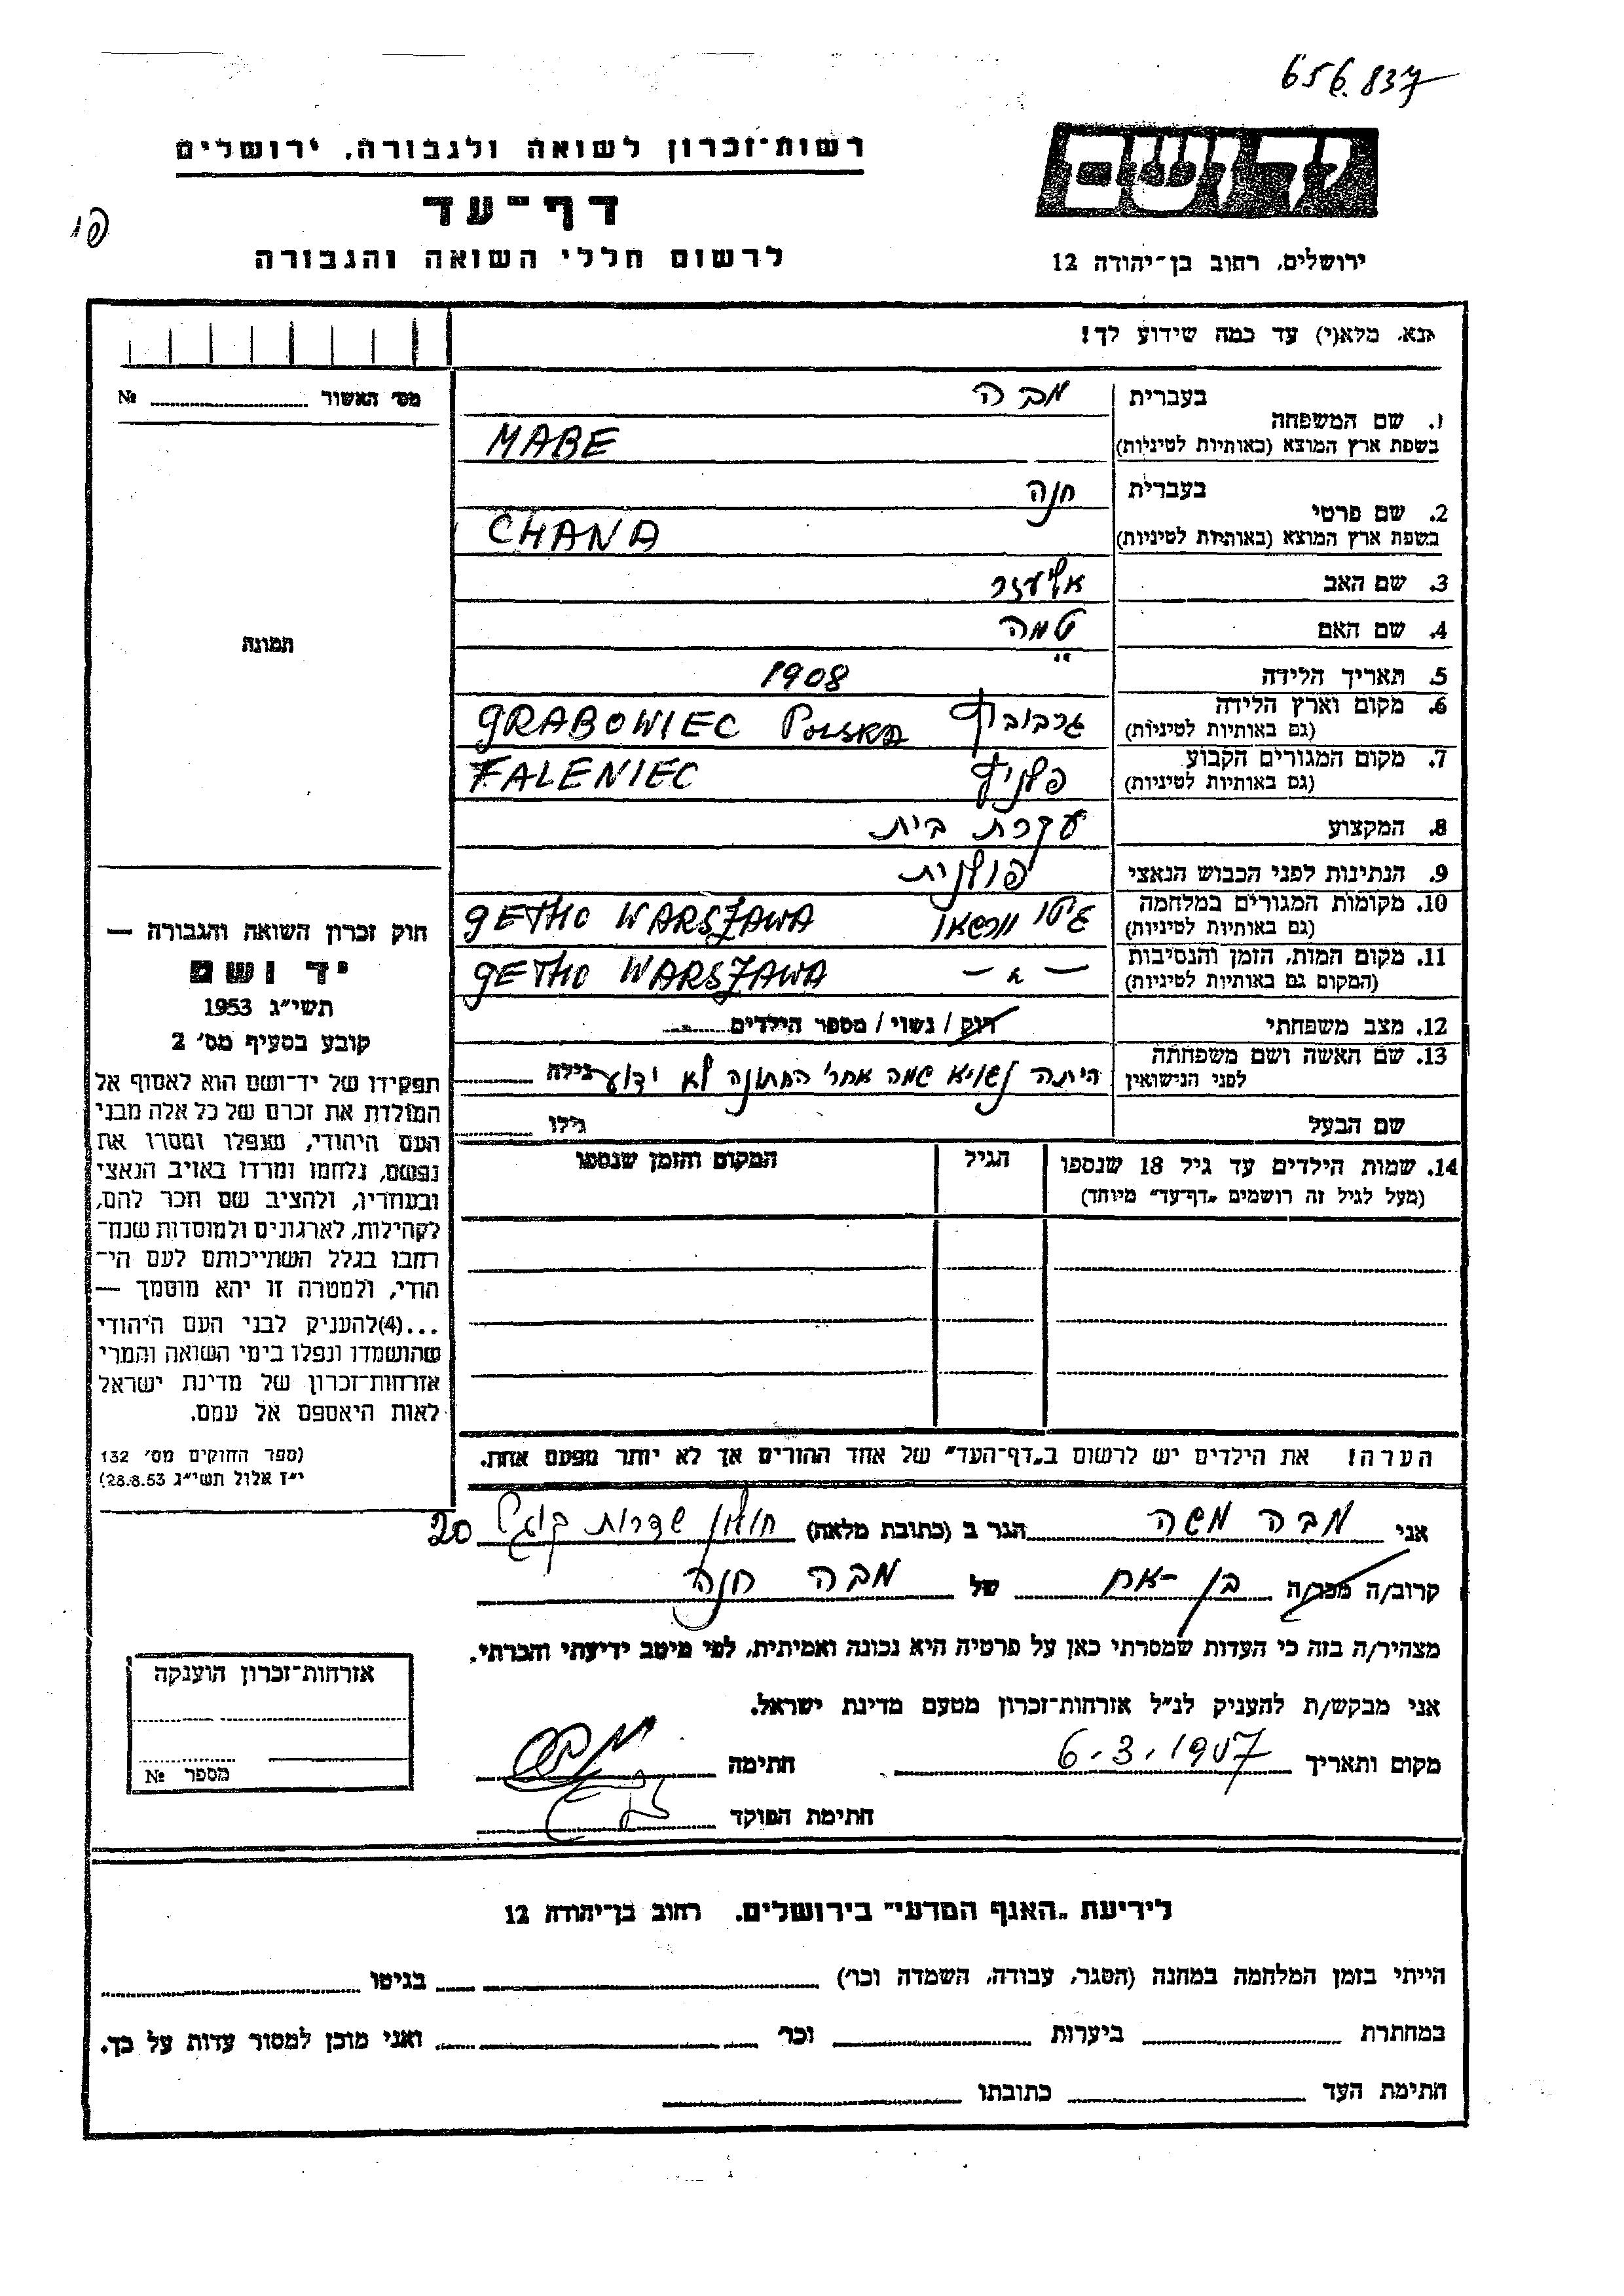 656.837
רשות־זכרון לשואה ולגבורה, ירושלים
דף־עד
לרשום חללי השואה והגבורה
ירושלים, רחוב בן־יהודה 12
נא, מלא(י) עד כמה שידוע לך!
מס׳ האשור № 
בעברית מבה
1. שם המשפחה
בשפת ארץ המוצא (באותיות לטיניות) MABE
בעברית חנה
2. שם פרטי
בשפת ארץ המוצא (באותיות לטיניות) CHANA
3. שם האב אליעזר
4. שם האם טמה
5. תאריך הלידה 1908
6. מקום וארץ הלידה
(גם באותיות לטיניות) גרבוביץ GRABOWIEC POLSKA
7. מקום המגורים הקבוע
(גם באותיות לטיניות) פלניץ FALENIEC
8. המקצוע עקרת בית
9. הנתינות לפני הכבוש הנאצי פולנית
10. מקומות המגורים במלחמה
(גם באותיות לטיניות) גיטו וורשאו GETHO WARSZAWA
11. מקום המות, הזמן והנסיבות
(המקום גם באותיות לטיניות) — " — GETHO WARSZAWA
12. מצב משפחתי רוק / נשוי / מספר הילדים
13. שם האשה ושם משפחתה
לפני הנישואין היתה נשויא שמה אחרי החתונה לא ידוע גילה
שם הבעל גילו
14. שמות הילדים עד גיל 18 שנספו הגיל המקום והזמן שנספו
(מעל לגיל זה רושמים „דף־עד״ מיוחד)
הערה! את הילדים יש לרשום ב„דף־העד״ של אחד ההורים אך לא יותר מפעם אחת.
תמונה
חוק זכרון השואה והגבורה —
יד ושם
תשי״ג 1953
קובע בסעיף מס׳ 2
תפקידו של יד־ושם הוא לאסוף אל
המולדת את זכרם של כל אלה מבני
העם היהודי, שנפלו ומסרו את
נפשם, נלחמו ומרדו באויב הנאצי
ובעוזריו, ולהציב שם וזכר להם,
לקהילות, לארגונים ולמוסדות שנח־
רחבו בגלל השתייכותם לעם הי־
הודי, ולמטרה זו יהא מוסמך —
...(4)להעניק לבני העם היהודי
שהושמדו ונפלו בימי השואה והמרי
אזרחות־זכרון של מדינת ישראל
לאות היאספם אל עמם.
(ספר החוקים מס׳ 132
י״ז אלול תשי״ג 28.8.53)
אני מבה משה הגר ב (כתובת מלאה) חולון שדרות קוגל 20
קרוב/ה מכר/ה בן-אח של מבה חנה
מצהיר/ה בזה כי העדות שמסרתי כאן על פרטיה היא נכונה ואמיתית, לפי מיטב ידיעתי והכרתי.
אני מבקש/ת להעניק לנ״ל אזרחות־זכרון מטעם מדינת ישראל.
מקום ותאריך 6.3.1957 חתימה
חתימת הפוקד
אזרחות־זכרון הוענקה
מספר №
לידיעת „האגף המדעי״ בירושלים. רחוב בן־יהודה 12
הייתי בזמן המלחמה במחנה (הסגר, עבודה, השמדה וכו׳) בגיטו
במחתרת ביערות וכו׳ ואני מוכן למסור עדות על כך.
חתימת העד כתובתו